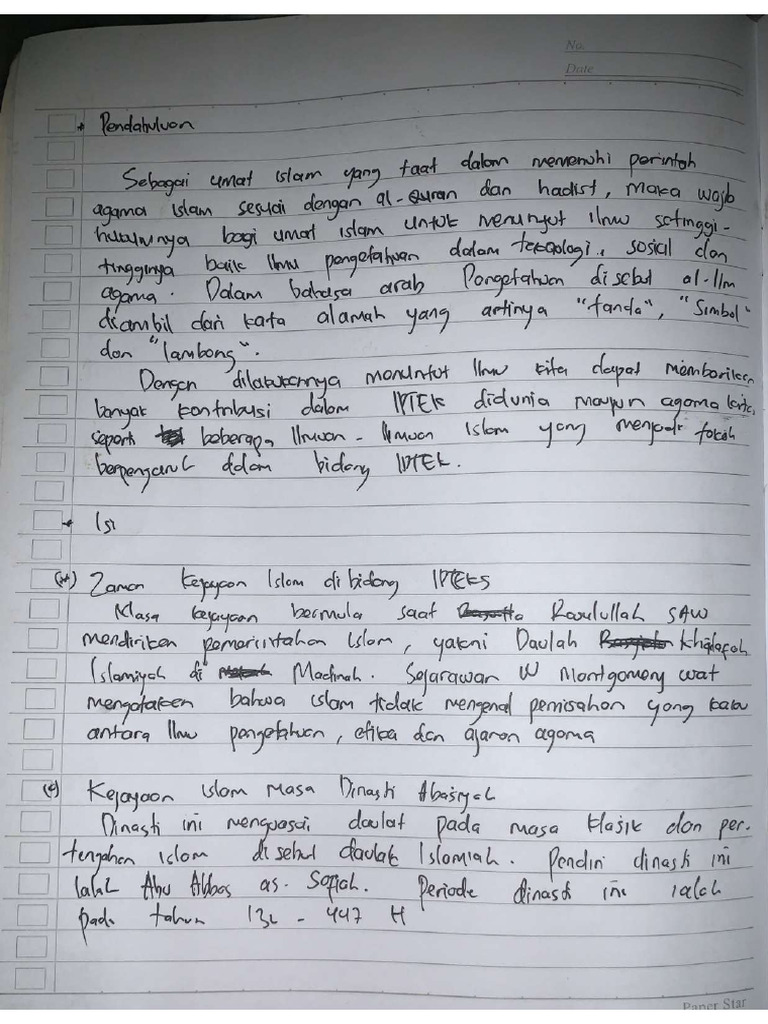 No.
Date
* Pendahuluan
Sebagai umat islam yang taat dalam memenuhi perintah
agama islam sesuai dengan al-Quran dan hadist, maka wajib
hukumnya bagi umat islam untuk menunyut ilmu setinggi-
tingginya baik Ilmu pengetahuan dalam teknologi, sosial dan
agama. Dalam bahasa arab Pengetahuan disebut al-Ilm
diambil dari kata alamah yang artinya "tanda", "Simbol"
dan "lambang".
Dengan dilakukannya menuntut Ilmu kita dapat memberikan
banyak kontribusi dalam IPTEK didunia maupun agama kita,
seperti beberapa Ilmuan - Ilmuan Islam yang menjadi tokoh
berpengaruh dalam bidang IPTEK.
* Isi
(*) Zaman Kejayaan Islam di bidang IPTEKS
Masa kejayaan bermula saat Rasulullah SAW
mendirikan pemerintahan Islam, yakni Daulah Khilafah
Islamiyah di Madinah. Sejarawan W Montgomery wat
mengatakan bahwa islam tidak mengenal pemisahan yang kaku
antara Ilmu pengetahuan, etika dan ajaran agama
Kejayaan islam Masa Dinasti Abasiyah
Dinasti ini menguasai daulat pada masa klasik dan per-
tengahan islam disebut daulah Islamiah. Pendiri dinasti ini
ialah Abu Abbas as-Safah. Periode dinasti ini ialah
pada tahun 132 - 447 H
Paper Star